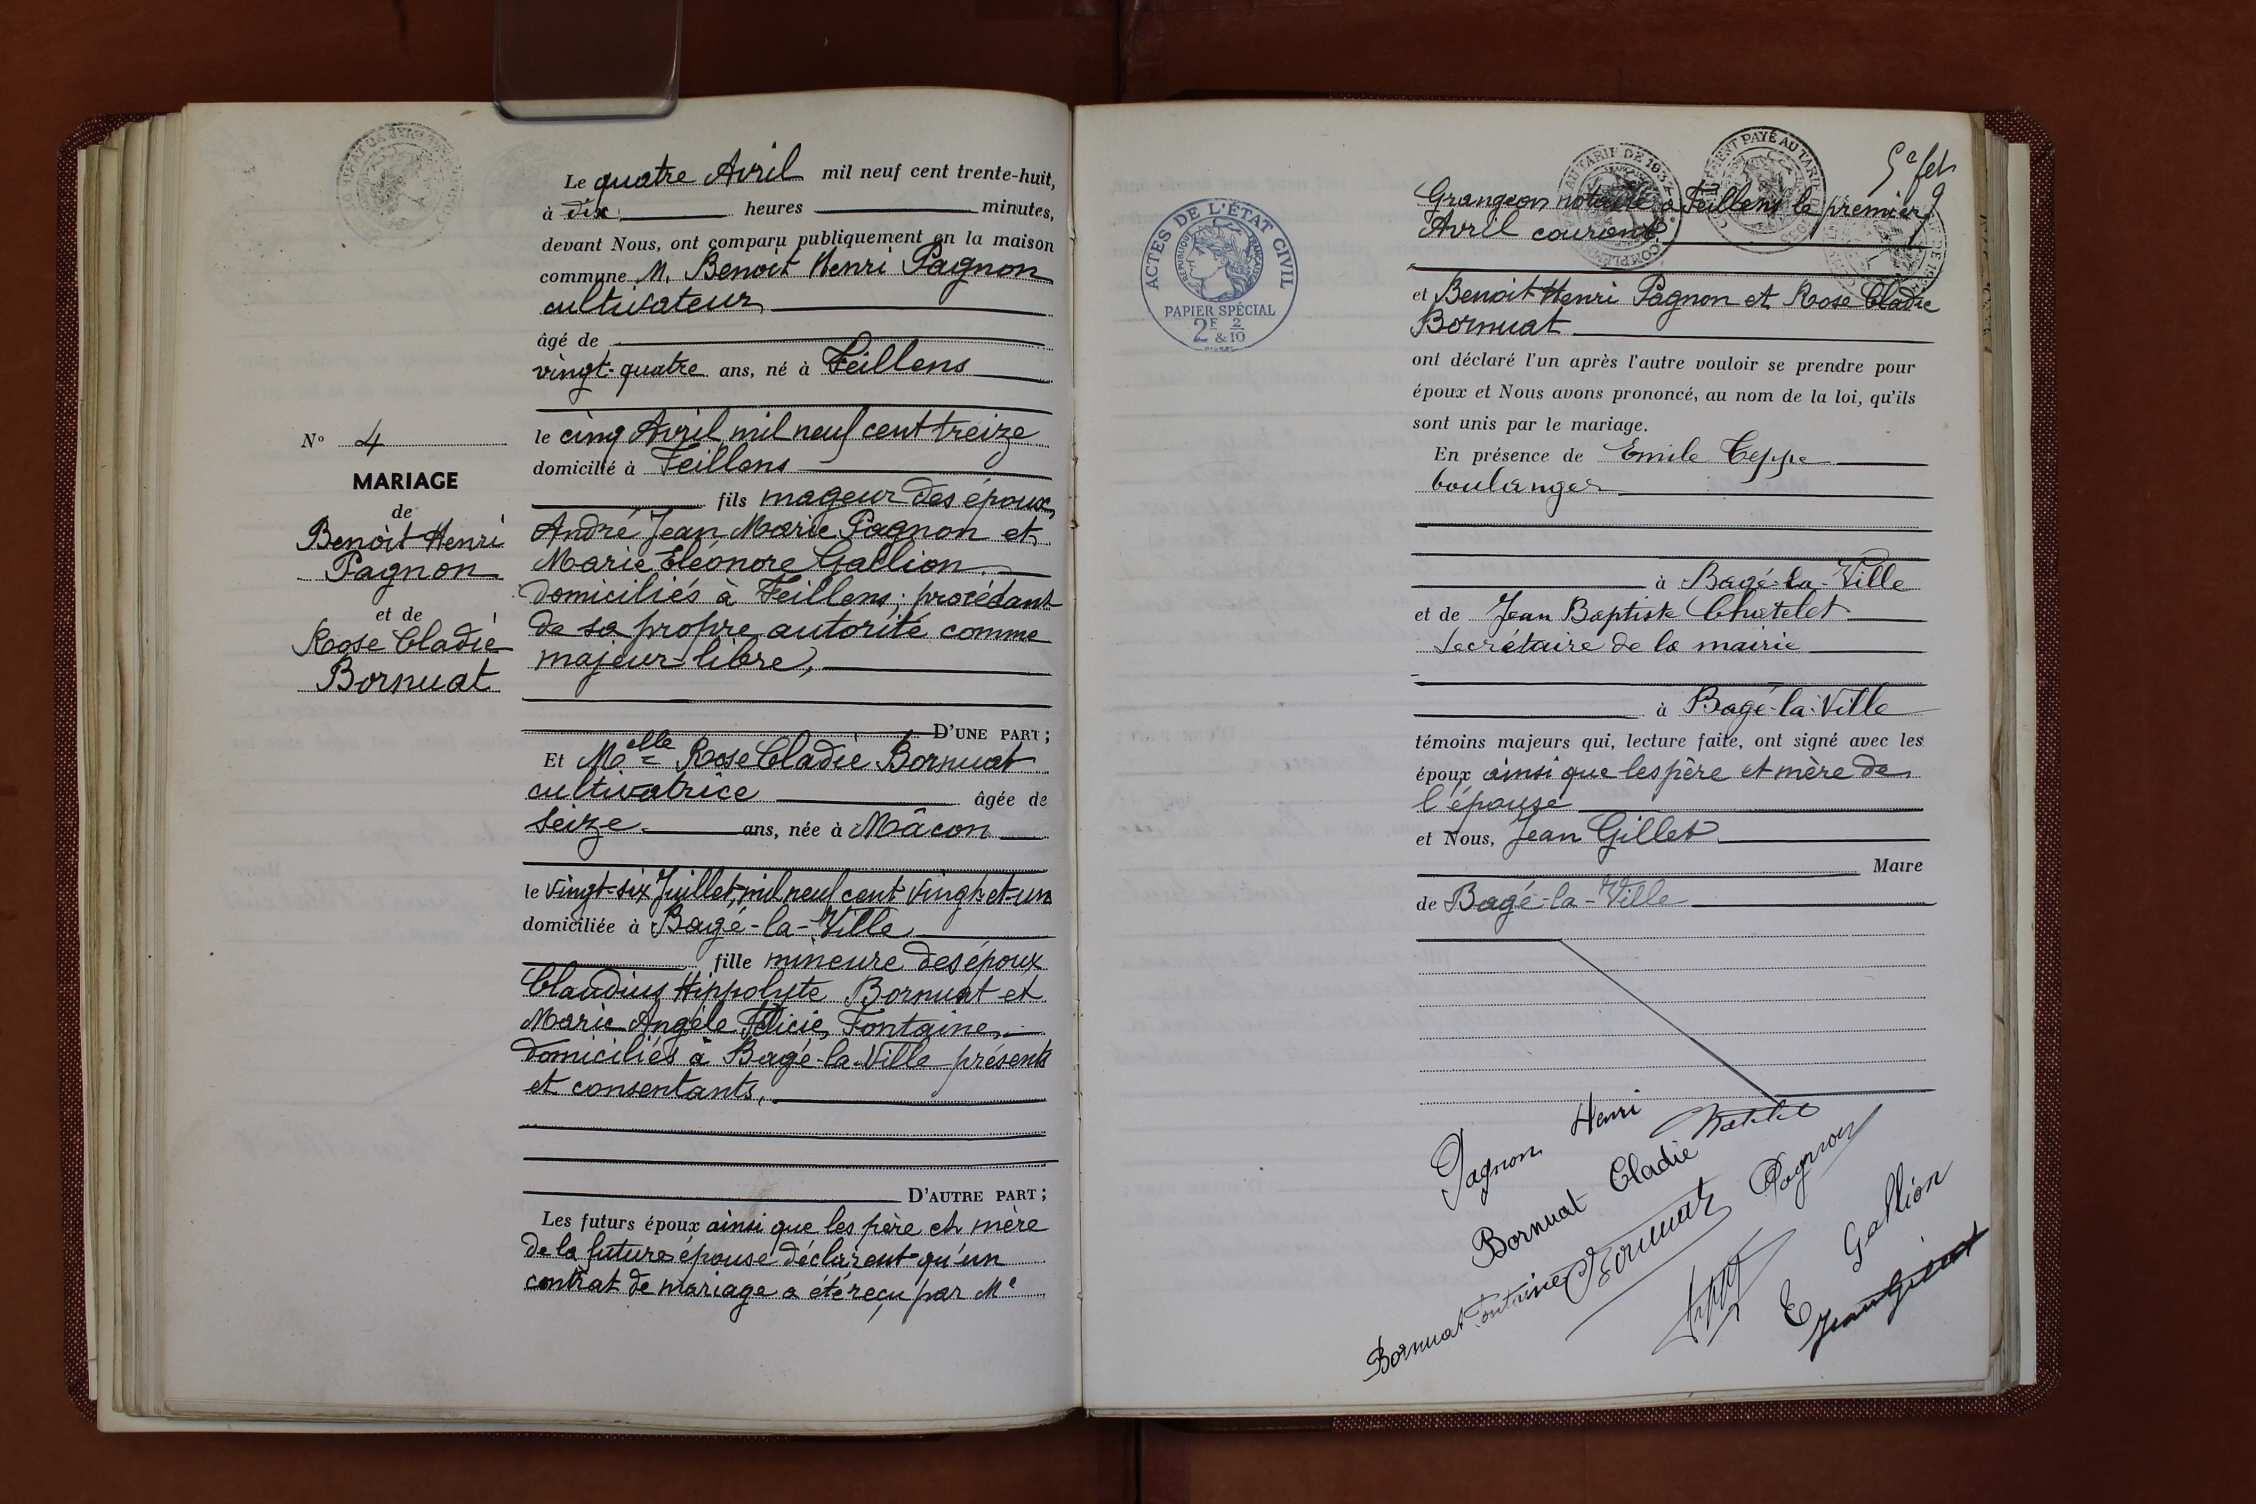 Le quatre Avril mil neuf cent trente-huit,
à dix heures minutes,
devant Nous, ont comparu publiquement en la maison
commune M. Benoit Henri Pagnon
cultivateur
âgé de
vingt-quatre ans, né à Feillens
le cinq Avril mil neuf cent treize
domicilié à Feillens
fils mageur des époux
André Jean Marie Pagnon et
Marie Eléonore Gallion
domiciliés à Feillens; procédant
de sa propre autorité comme
majeur-libre,
D'UNE PART;
Et Melle Rose Cladie Bornuat
cultivatrice âgée de
seize ans, née à Mâcon
le vingt-six Juillet, mil neuf cent vingt-et-un
domiciliée à Bagé-la-Ville
fille mineure des époux
Claudius Hippolyte Bornuat et
Marie Angèle Félicie Fontaine,
domiciliés à Bagé-la-Ville présents
et consentants,
D'AUTRE PART;
Les futurs époux ainsi que les père et mère
de la future épouse déclarent qu'un
contrat de mariage a été reçu par Me
N° 4
MARIAGE
de
Benoit Henri
Pagnon
et de
Rose Cladie
Bornuat
ACTES DE L'ÉTAT CIVIL
RÉPUBLIQUE FRANÇAISE
PAPIER SPÉCIAL
2F & 2/10
Grangeon notaire à Feillens le premier
Avril courant
et Benoit Henri Pagnon et Rose Cladie
Bornuat
ont déclaré l'un après l'autre vouloir se prendre pour
époux et Nous avons prononcé, au nom de la loi, qu'ils
sont unis par le mariage.
En présence de Emile Teppe
boulanger
à Bagé-la-Ville
et de Jean Baptiste Chatelet
secrétaire de la mairie
à Bagé-la-Ville
témoins majeurs qui, lecture faite, ont signé avec les
époux ainsi que les père et mère de
l'épouse
et Nous, Jean Gillet
Maire
de Bagé-la-Ville
Pagnon Henri
Bornuat Cladie
Pagnon
Bornuat Fontaine
Bornuat
E Gallion
Jean Gillet